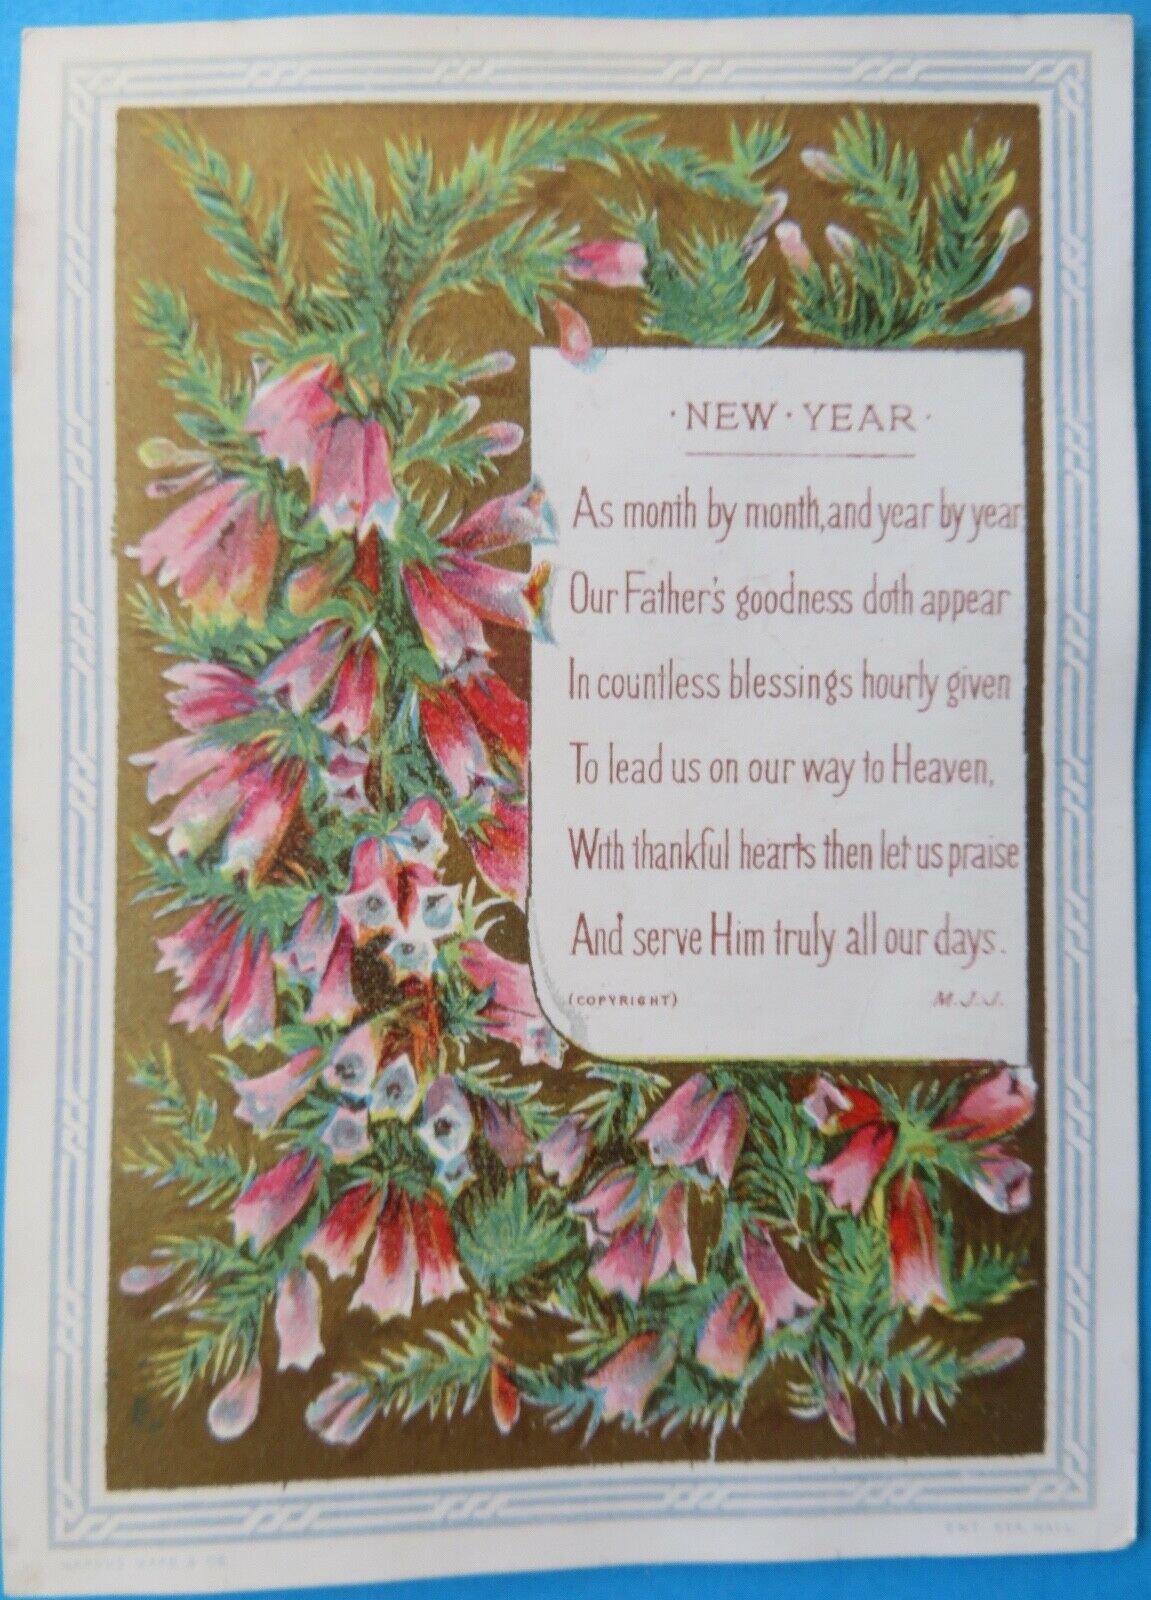 ·NEW·YEAR·
As month by month, and year by year
Our Father's goodness doth appear
In countless blessings hourly given
To lead us on our way to Heaven,
With thankful hearts then let us praise
And serve Him truly all our days.
(COPYRIGHT) M.J.J.
MARCUS WARD & CO
ENT. STA. HALL